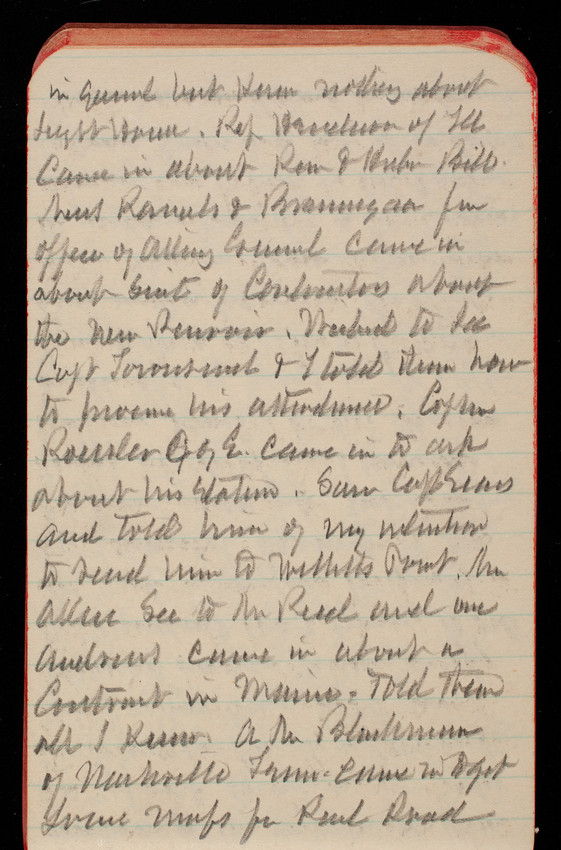 in general but knew nothing about
Light House. Rep Henderson of Ill
Came in about Rom & Bill.
Messrs & Brannigan from
office of Atty General came in
about Suit of Contractors about
the New Reservoir. Wished to see
Capt Townsend & I told them how
to procure his attendance. Captain
Roessler C of E. came in to ask
about his station. Saw Capt Sears
and told him of my intention
to send him to Willetts Point. Mr
Allen Sec to Mr Reed and one
Andrews came in about a
Contract in Maine. Told them
all I knew. A Mr Blackman
of Nashville Tenn. came in to get
Some maps for Rail Road